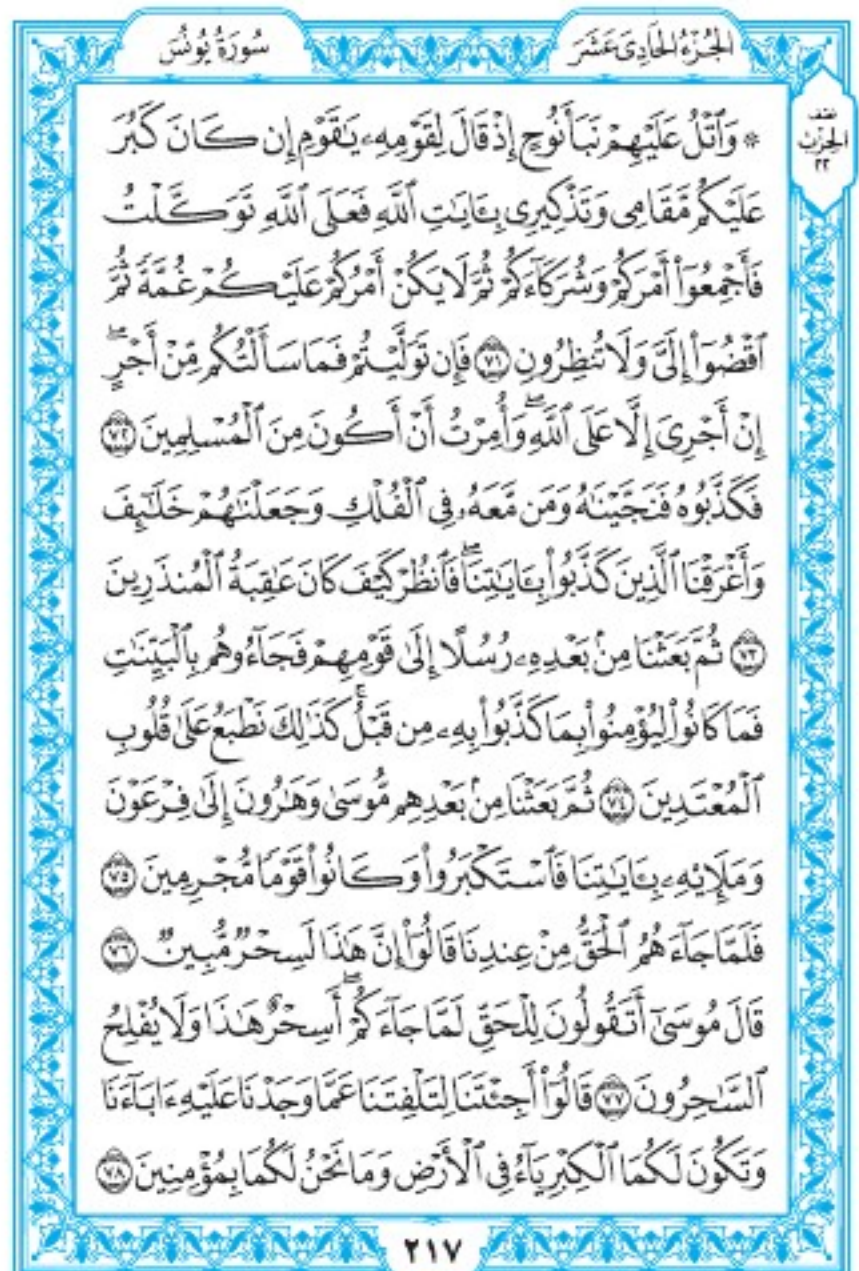 الجُزْءُ الحَادِىَ عَشَرَ
سُورَةُ يُونُسَ
نصف
الحِزْب
٢٢
۞ وَٱتۡلُ عَلَيۡهِمۡ نَبَأَ نُوحٍ إِذۡ قَالَ لِقَوۡمِهِۦ يَٰقَوۡمِ إِن كَانَ كَبُرَ
عَلَيۡكُم مَّقَامِى وَتَذۡكِيرِى بِـَٔايَٰتِ ٱللَّهِ فَعَلَى ٱللَّهِ تَوَكَّلۡتُ
فَأَجۡمِعُوٓاْ أَمۡرَكُمۡ وَشُرَكَآءَكُمۡ ثُمَّ لَا يَكُنۡ أَمۡرُكُمۡ عَلَيۡكُمۡ غُمَّةً ثُمَّ
ٱقۡضُوٓاْ إِلَىَّ وَلَا تُنظِرُونِ ٧١ فَإِن تَوَلَّيۡتُمۡ فَمَا سَأَلۡتُكُم مِّنۡ أَجۡرٍۖ
إِنۡ أَجۡرِىَ إِلَّا عَلَى ٱللَّهِۖ وَأُمِرۡتُ أَنۡ أَكُونَ مِنَ ٱلۡمُسۡلِمِينَ ٧٢
فَكَذَّبُوهُ فَنَجَّيۡنَٰهُ وَمَن مَّعَهُۥ فِى ٱلۡفُلۡكِ وَجَعَلۡنَٰهُمۡ خَلَٰٓئِفَ
وَأَغۡرَقۡنَا ٱلَّذِينَ كَذَّبُواْ بِـَٔايَٰتِنَاۖ فَٱنظُرۡ كَيۡفَ كَانَ عَٰقِبَةُ ٱلۡمُنذَرِينَ
٧٣ ثُمَّ بَعَثۡنَا مِنۢ بَعۡدِهِۦ رُسُلًا إِلَىٰ قَوۡمِهِمۡ فَجَآءُوهُم بِٱلۡبَيِّنَٰتِ
فَمَا كَانُواْ لِيُؤۡمِنُواْ بِمَا كَذَّبُواْ بِهِۦ مِن قَبۡلُۚ كَذَٰلِكَ نَطۡبَعُ عَلَىٰ قُلُوبِ
ٱلۡمُعۡتَدِينَ ٧٤ ثُمَّ بَعَثۡنَا مِنۢ بَعۡدِهِم مُّوسَىٰ وَهَٰرُونَ إِلَىٰ فِرۡعَوۡنَ
وَمَلَإِيْهِۦ بِـَٔايَٰتِنَا فَٱسۡتَكۡبَرُواْ وَكَانُواْ قَوۡمًا مُّجۡرِمِينَ ٧٥
فَلَمَّا جَآءَهُمُ ٱلۡحَقُّ مِنۡ عِندِنَا قَالُوٓاْ إِنَّ هَٰذَا لَسِحۡرٌ مُّبِينٌ ٧٦
قَالَ مُوسَىٰٓ أَتَقُولُونَ لِلۡحَقِّ لَمَّا جَآءَكُمۡۖ أَسِحۡرٌ هَٰذَا وَلَا يُفۡلِحُ
ٱلسَّٰحِرُونَ ٧٧ قَالُوٓاْ أَجِئۡتَنَا لِتَلۡفِتَنَا عَمَّا وَجَدۡنَا عَلَيۡهِ ءَابَآءَنَا
وَتَكُونَ لَكُمَا ٱلۡكِبۡرِيَآءُ فِى ٱلۡأَرۡضِ وَمَا نَحۡنُ لَكُمَا بِمُؤۡمِنِينَ ٧٨
٢١٧